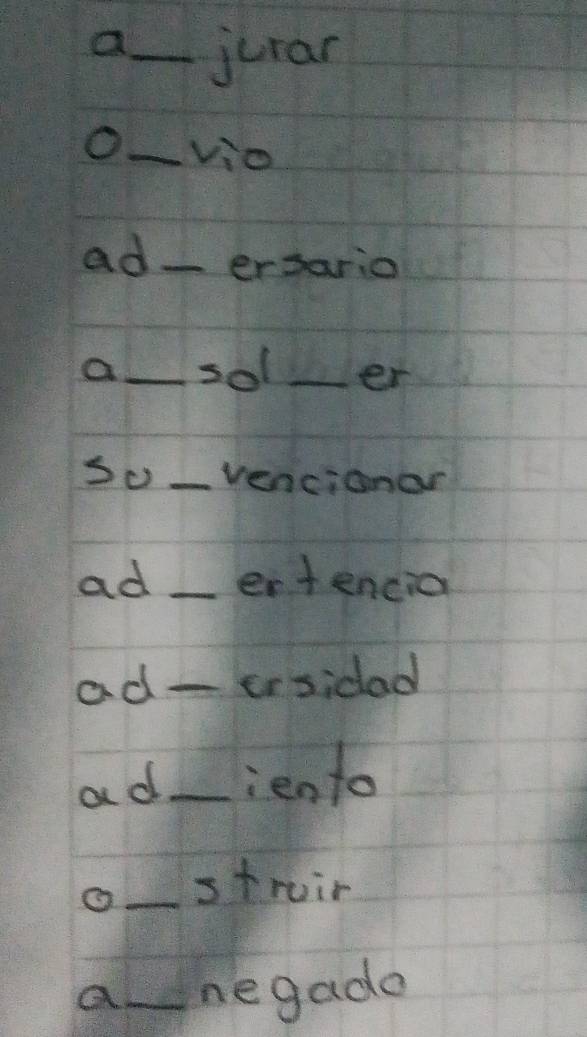 a_jurar
o_vio
ad_ersario
a_sol_er
su_vencionar
ad_ertencia
ad_ersidad
ad_iento
o_struir
a_negado